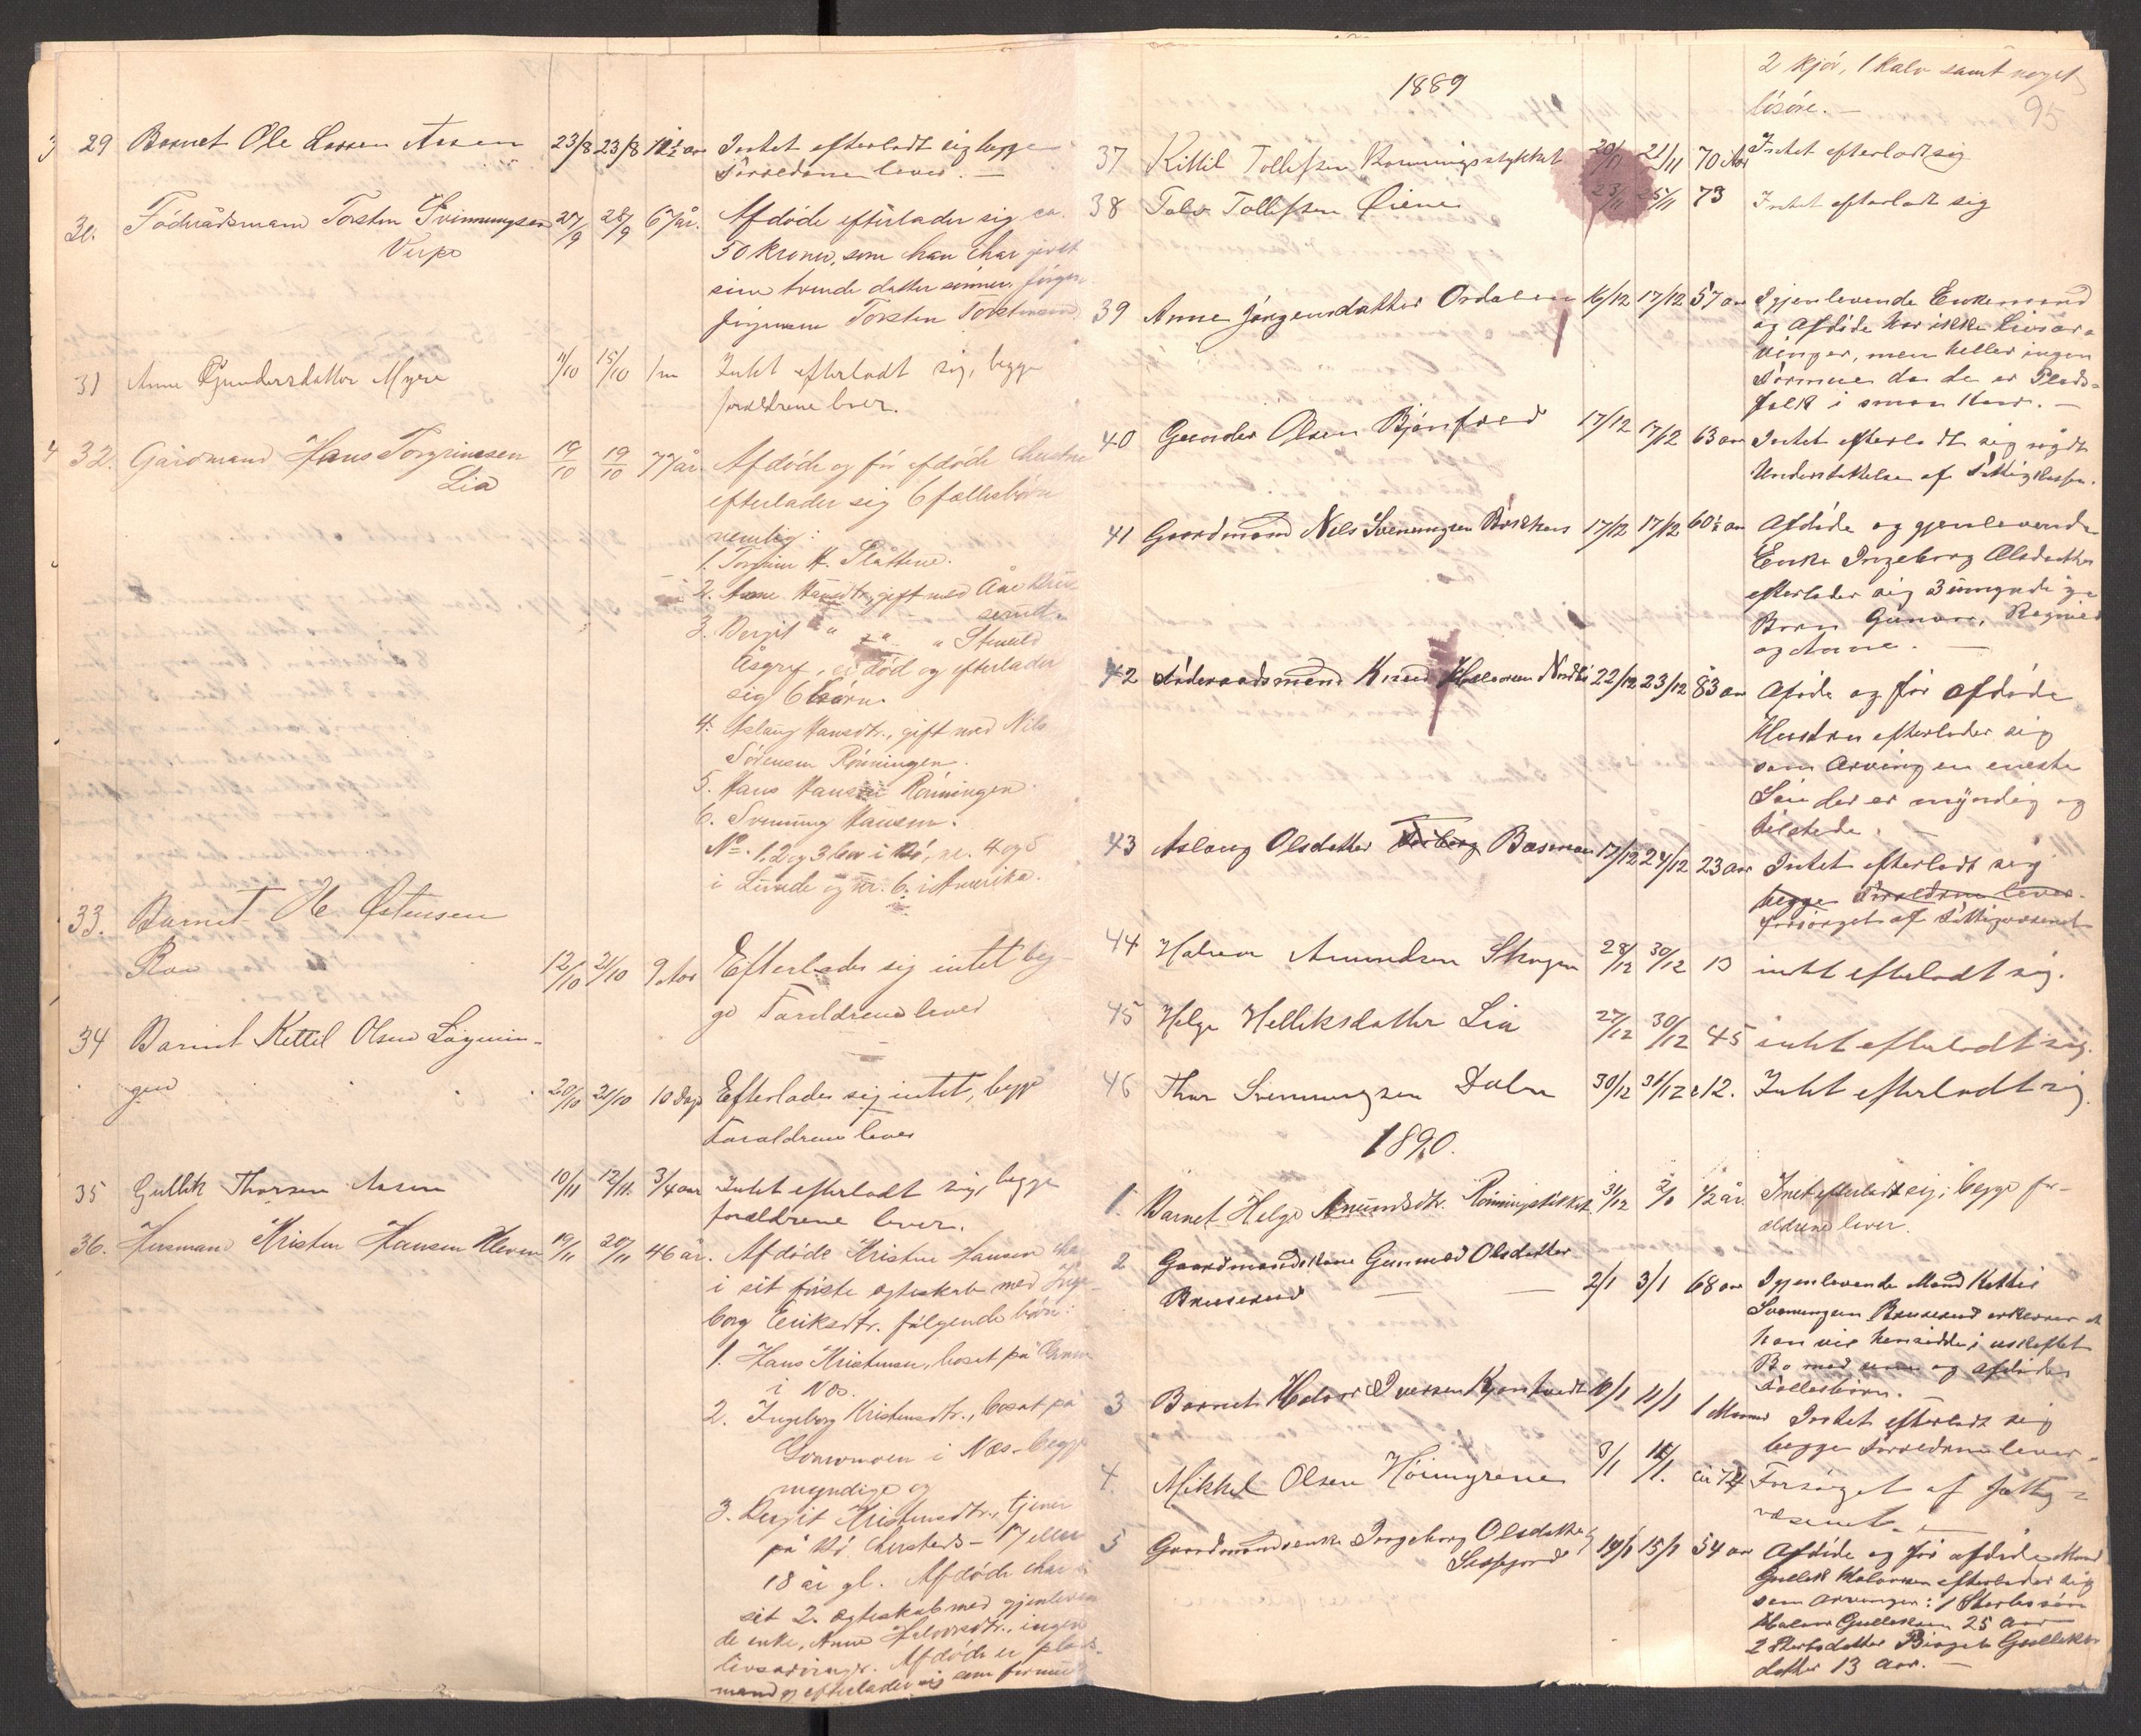 29 Barnet Ole Larsen Aasen 23/8 23/8 1½ aar Intet efterladt sig begge
Forældrene lever. —
30. Födraadsmand Torsten Svenningsen 27/9 28/9 67 år. Afdöde efterlader sig ca.
Verpe
50 kroner, som han har givet
sine tvende datter sønner, Jörgen
Jörgensen Torsten Torstensen
31 Anne Gundersdatter Myra 15/10 1 m Intet efterladt sig, begge
forældrene lever.
4 32. Gårdmand Hans Torgrimsen 19/10 19/10 77 år. Afdøde og før afdøde hustru
Lia
efterlader sig 6 fællesbörn
nemlig:
1. Torgrim H. Slåttene.
2. Anne Hansdtr., gift med Åne
3. Bergit " " "
Åsgrf, er död og efterlader
sig 6 barn.
4. Aslaug Hansdtr., gift med Nils
Sörensen Rönningen.
5. Hans Hansen Rönningen.
6. Svenning Hansen.
No. 1, 2 og 3 bor i Bö, nr. 4 og 5
i Lunde og nr. 6. i Amerika.
33. Barnet Ole Östensen
12/10 21/10 9 Aar Efterlader sig intet beg-
ge Forældrene lever
34 Barnet Kettil Olsen Lögnin-
gen 20/10 21/10 10 Dage Efterlader sig intet, begge
Forældrene lever
35 Gullik Thorsen Aasen 10/11 12/11 3/4 aar Intet efterladt sig, begge
forældrene lever.
36. Husmand Kristen Hansen Kleven 19/11 20/11 46 år. Afdöde Kristen Hansen har
i sit første ægteskab med Inge-
borg Eriksdtr. fölgende børn:
1. Hans Kristensen, bosat på
i Næs.
2. Ingeborg Kristensdtr., bosat på
i Næs - begge
myndige og
3. Bergit Kristensdtr., tjener
på Bö - 17 eller
18 år gl. Afdöde har i
sit 2. ægteskab med gjenleven
de enke, Anne Halvorsdtr., ingen
livsarvinger. Afdöde er plads-
mand og efterlader sig som formue
1889
2 kjör, 1 kalv samt noget
lösöre. —
95
37 Kittil Tollefsen Rønningstykket 20/11 21/11 70 Aar Intet efterladt sig
38 Talv Tollefsen Øiene 23/11 25/11 73 Intet efterladt sig
39 Anne Jörgensdatter Ordalen 16/12 17/12 57 aar Igjenlevende Enkemand
og Afdöde har ikke Livsar-
vinger, men heller ingen
Formue da de er Plads-
folk i smaa Kaar. —
40 Gunder Olsen Bjönfred 17/12 17/12 63 aar Intet efterladt sig nydt
Understöttelse af Fattigkassen.
41 Gaardmand Nils Svenningsen 17/12 17/12 60½ aar Afdöde og gjenlevende
Enke Ingeborg Olsdatter
efterlader sig 3 umyndige
Börn Gunvor, Ragnild
og Anne. —
42 Föderaadsmand Knud Halvorsen Nordbö 22/12 23/12 83 aar Afdöde og för afdöde
Hustru efterlader sig
som Arving en eneste
Sön der er myndig og
tilstede. —
43 Aslaug Olsdatter Basman 17/12 24/12 23 aar Intet efterladt sig
begge Forældrene lever.
forsörget af Fattigvæsenet
44 Halvor Amundsen Skogen 28/12 30/12 13 intet efterladt sig.
45 Helge Helleksdatter Lia 27/12 30/12 45 intet efterladt sig.
46 Thor Svenningsen Dalen 30/12 31/12 c 12. Intet efterladt sig.
1890.
1. Barnet Helge Amundsdtr. Rønningstikket 31/12 2/1 ½ år. Intet efterladt sig; begge for-
ældrene lever.
2 Gaardmandskone Gunnild Olsdatter
Bruserud — — 2/1 3/1 68 aar Igjenlevende Mand Kettil
Svenningsen Bruserud erklærer at
han vil hensidde i uskiftet
Bo med og afdödes
Fællesbörn.
3 Barnet Halvor Iversen 10/1 11/1 1 Maaned Intet efterladt sig
begge Forældrene lever.
4. Mikkel Olsen Höimyrene 8/1 11/1. ca 74 Forsörget af fattig-
væsenet. —
5 Gaardmandsenke Ingeborg Olsdatter 14/1 15/1 54 aar Afdöde og för afdöde Mand
Gullik Halvorsen efterlader sig
som Arvinger: 1 Sterbosøn
Halvor Gulliksen 25 Aar
2 Sterbodatter Birget Gulliks-
datter 13 Aar. —